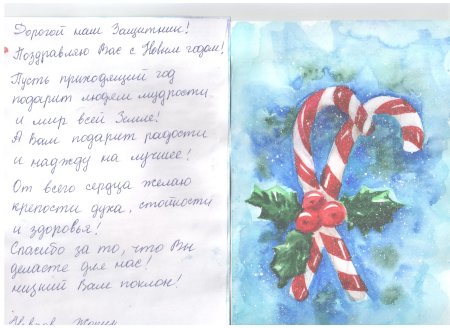 Дорогой наш Защитник!
Поздравляю Вас с Новым годом!
Пусть приходящий год
подарит людям мудрости
и мир всей Земле!
А Вам подарит радости
и надежду на лучшее!
От всего сердца желаю
крепости духа, стойкости
и здоровья!
Спасибо за то, что Вы
делаете для нас!
низкий Вам поклон!